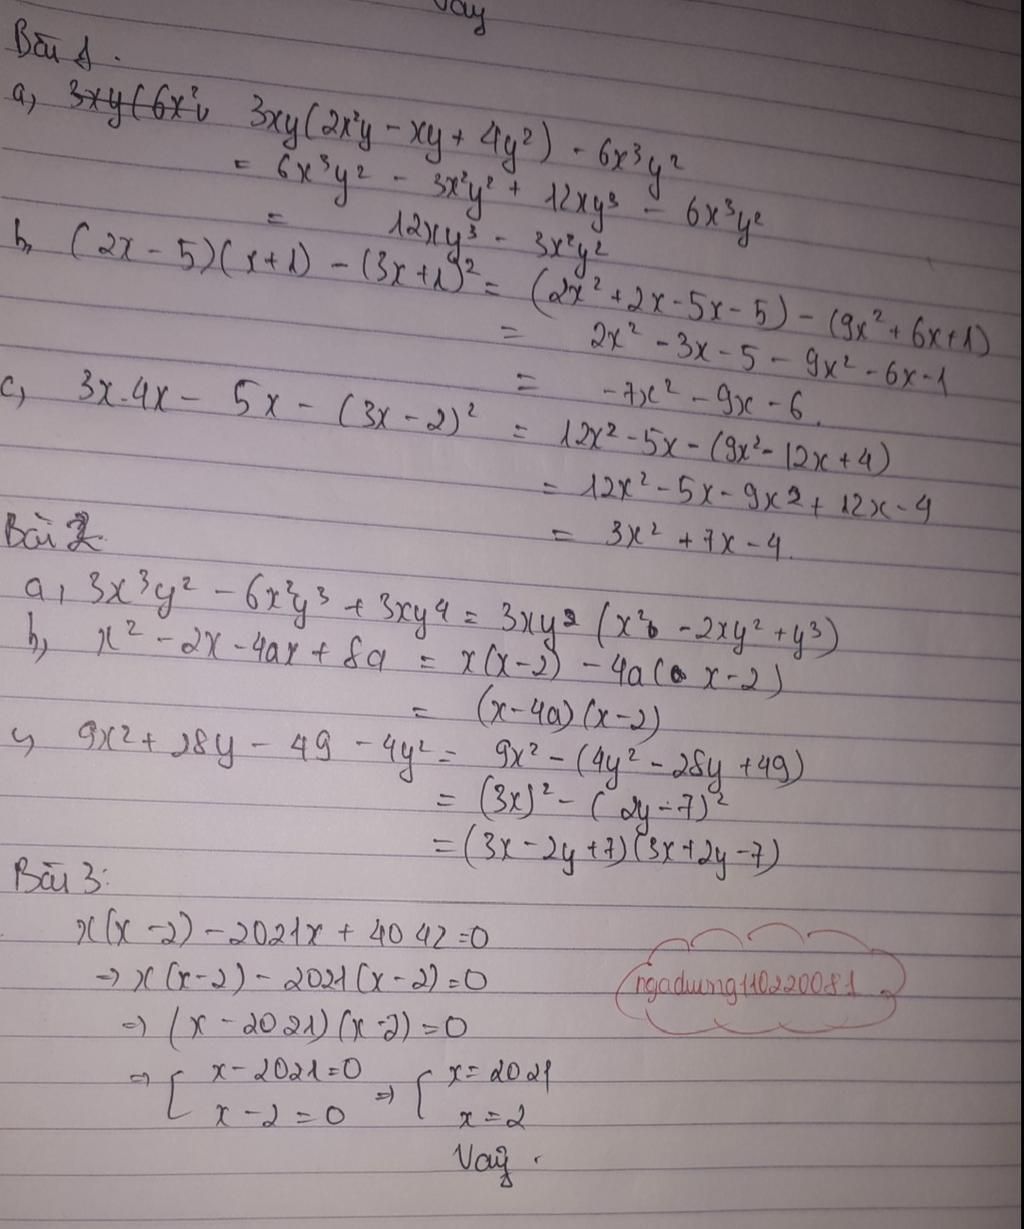 Vậy
Bài 1.
a, 3xy(6x²y 3xy(2x²y - xy + 4y²) - 6x³y²
= 6x³y² - 3x²y² + 12xy³ - 6x³y²
= 12xy³ - 3x²y²
b, (2x - 5)(x+1) - (3x+1)² = (2x² + 2x - 5x - 5) - (9x² + 6x+1)
= 2x² - 3x - 5 - 9x² - 6x - 1
= -7x² - 9x - 6.
c, 3x.4x - 5x - (3x - 2)² = 12x² - 5x - (9x² - 12x + 4)
= 12x² - 5x - 9x2 + 12x - 4
= 3x² + 7x - 4.
Bài 2.
a, 3x³y² - 6x²y³ + 3xy⁴ = 3xy2 (x² - 2xy² + y³)
b, x² - 2x - 4ax + 8a = x(x - 2) - 4a( x - 2)
= (x - 4a)(x - 2)
c, 9x² + 28y - 49 - 4y² = 9x² - (4y² - 28y + 49)
= (3x)² - (2y - 7)²
= (3x - 2y + 7)(3x + 2y - 7)
Bài 3:
x(x - 2) - 2021x + 4042 = 0
⇒ x(x - 2) - 2021(x - 2) = 0
⇒ (x - 2021)(x - 2) = 0
⇒ [ x - 2021 = 0 ⇒ [ x = 2021
x - 2 = 0 x = 2
Vậy .
ngadung110220081